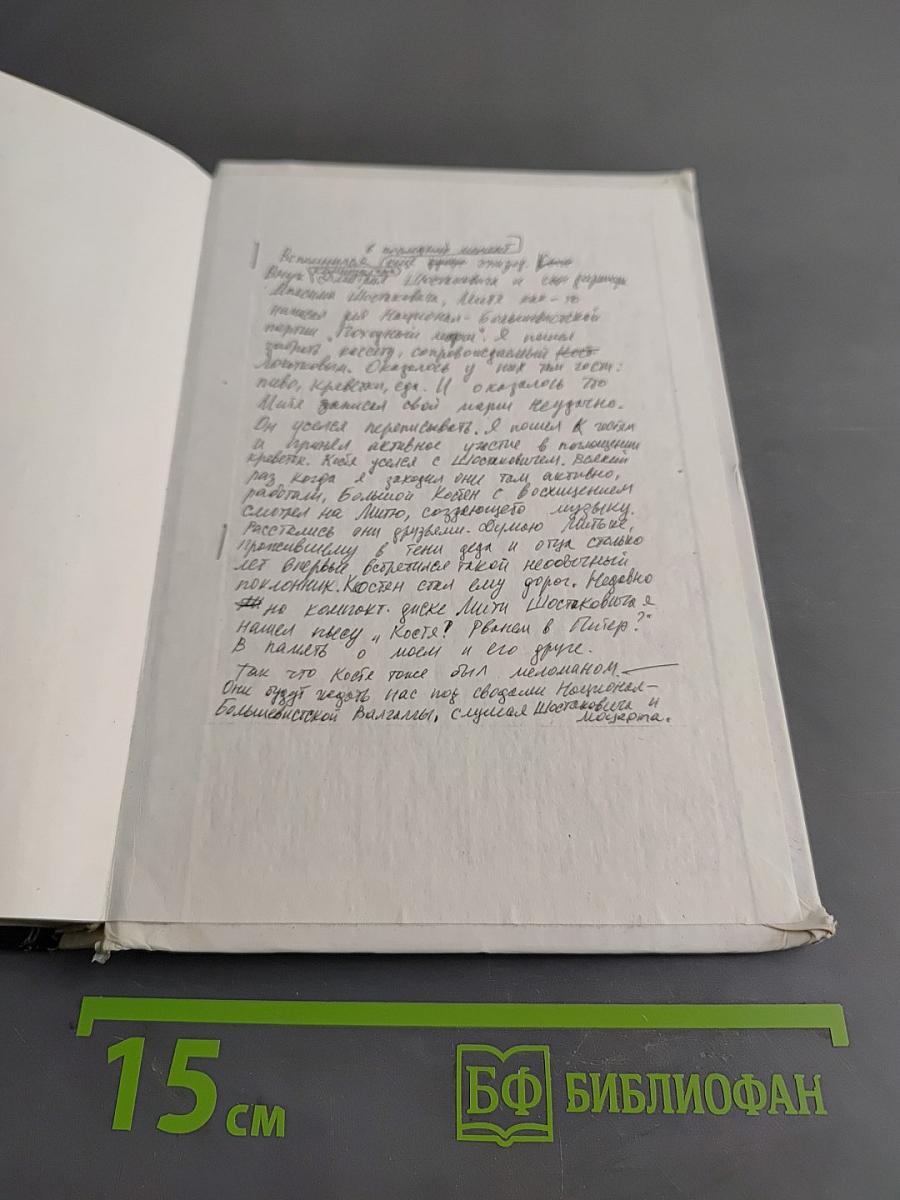 в последний момент
Вспомнился ещё эпизод.
Внук композитора Шостаковича и сын дирижёра
Максима Шостаковича, Митя как-то
написал для Национал-Большевистской
партии „Походный марш". Я пошел
забрать кассету, сопровождаемый
Локотковым. Оказалось у них там гости:
пиво, креветки, еда. И оказалось что
Митя записал свой марш неудачно.
Он уселся переписывать. Я пошел к гостям
и принял активное участие в поглощении
креветок. Костя уселся с Шостаковичем. Всякий
раз когда я заходил они там активно,
работали, Большой Костен с восхищением
смотрел на Митю, создающего музыку.
Расстались они друзьями. Думаю Митьке,
прожившему в тени деда и отца столько
лет впервые встретился такой необычный
поклонник. Костен стал ему дорог. Недавно
на компакт-диске Мити Шостаковича я
нашел пьесу „Костя? Рванем в Питер?"
В память о моем и его друге.
Так что Костя тоже был меломаном.—
Они будут ждать нас под сводами Национал-
Большевистской Валгаллы, слушая Шостаковича и
Моцарта.
15 см
БФ БИБЛИОФАН